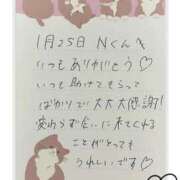 1月25日 Nくんへ
いつもありがとう♡
いつも助けてもらって
ばかりで大大大感謝!
変わらず会いに来てくれる
ことがとっても
うれしいです♡